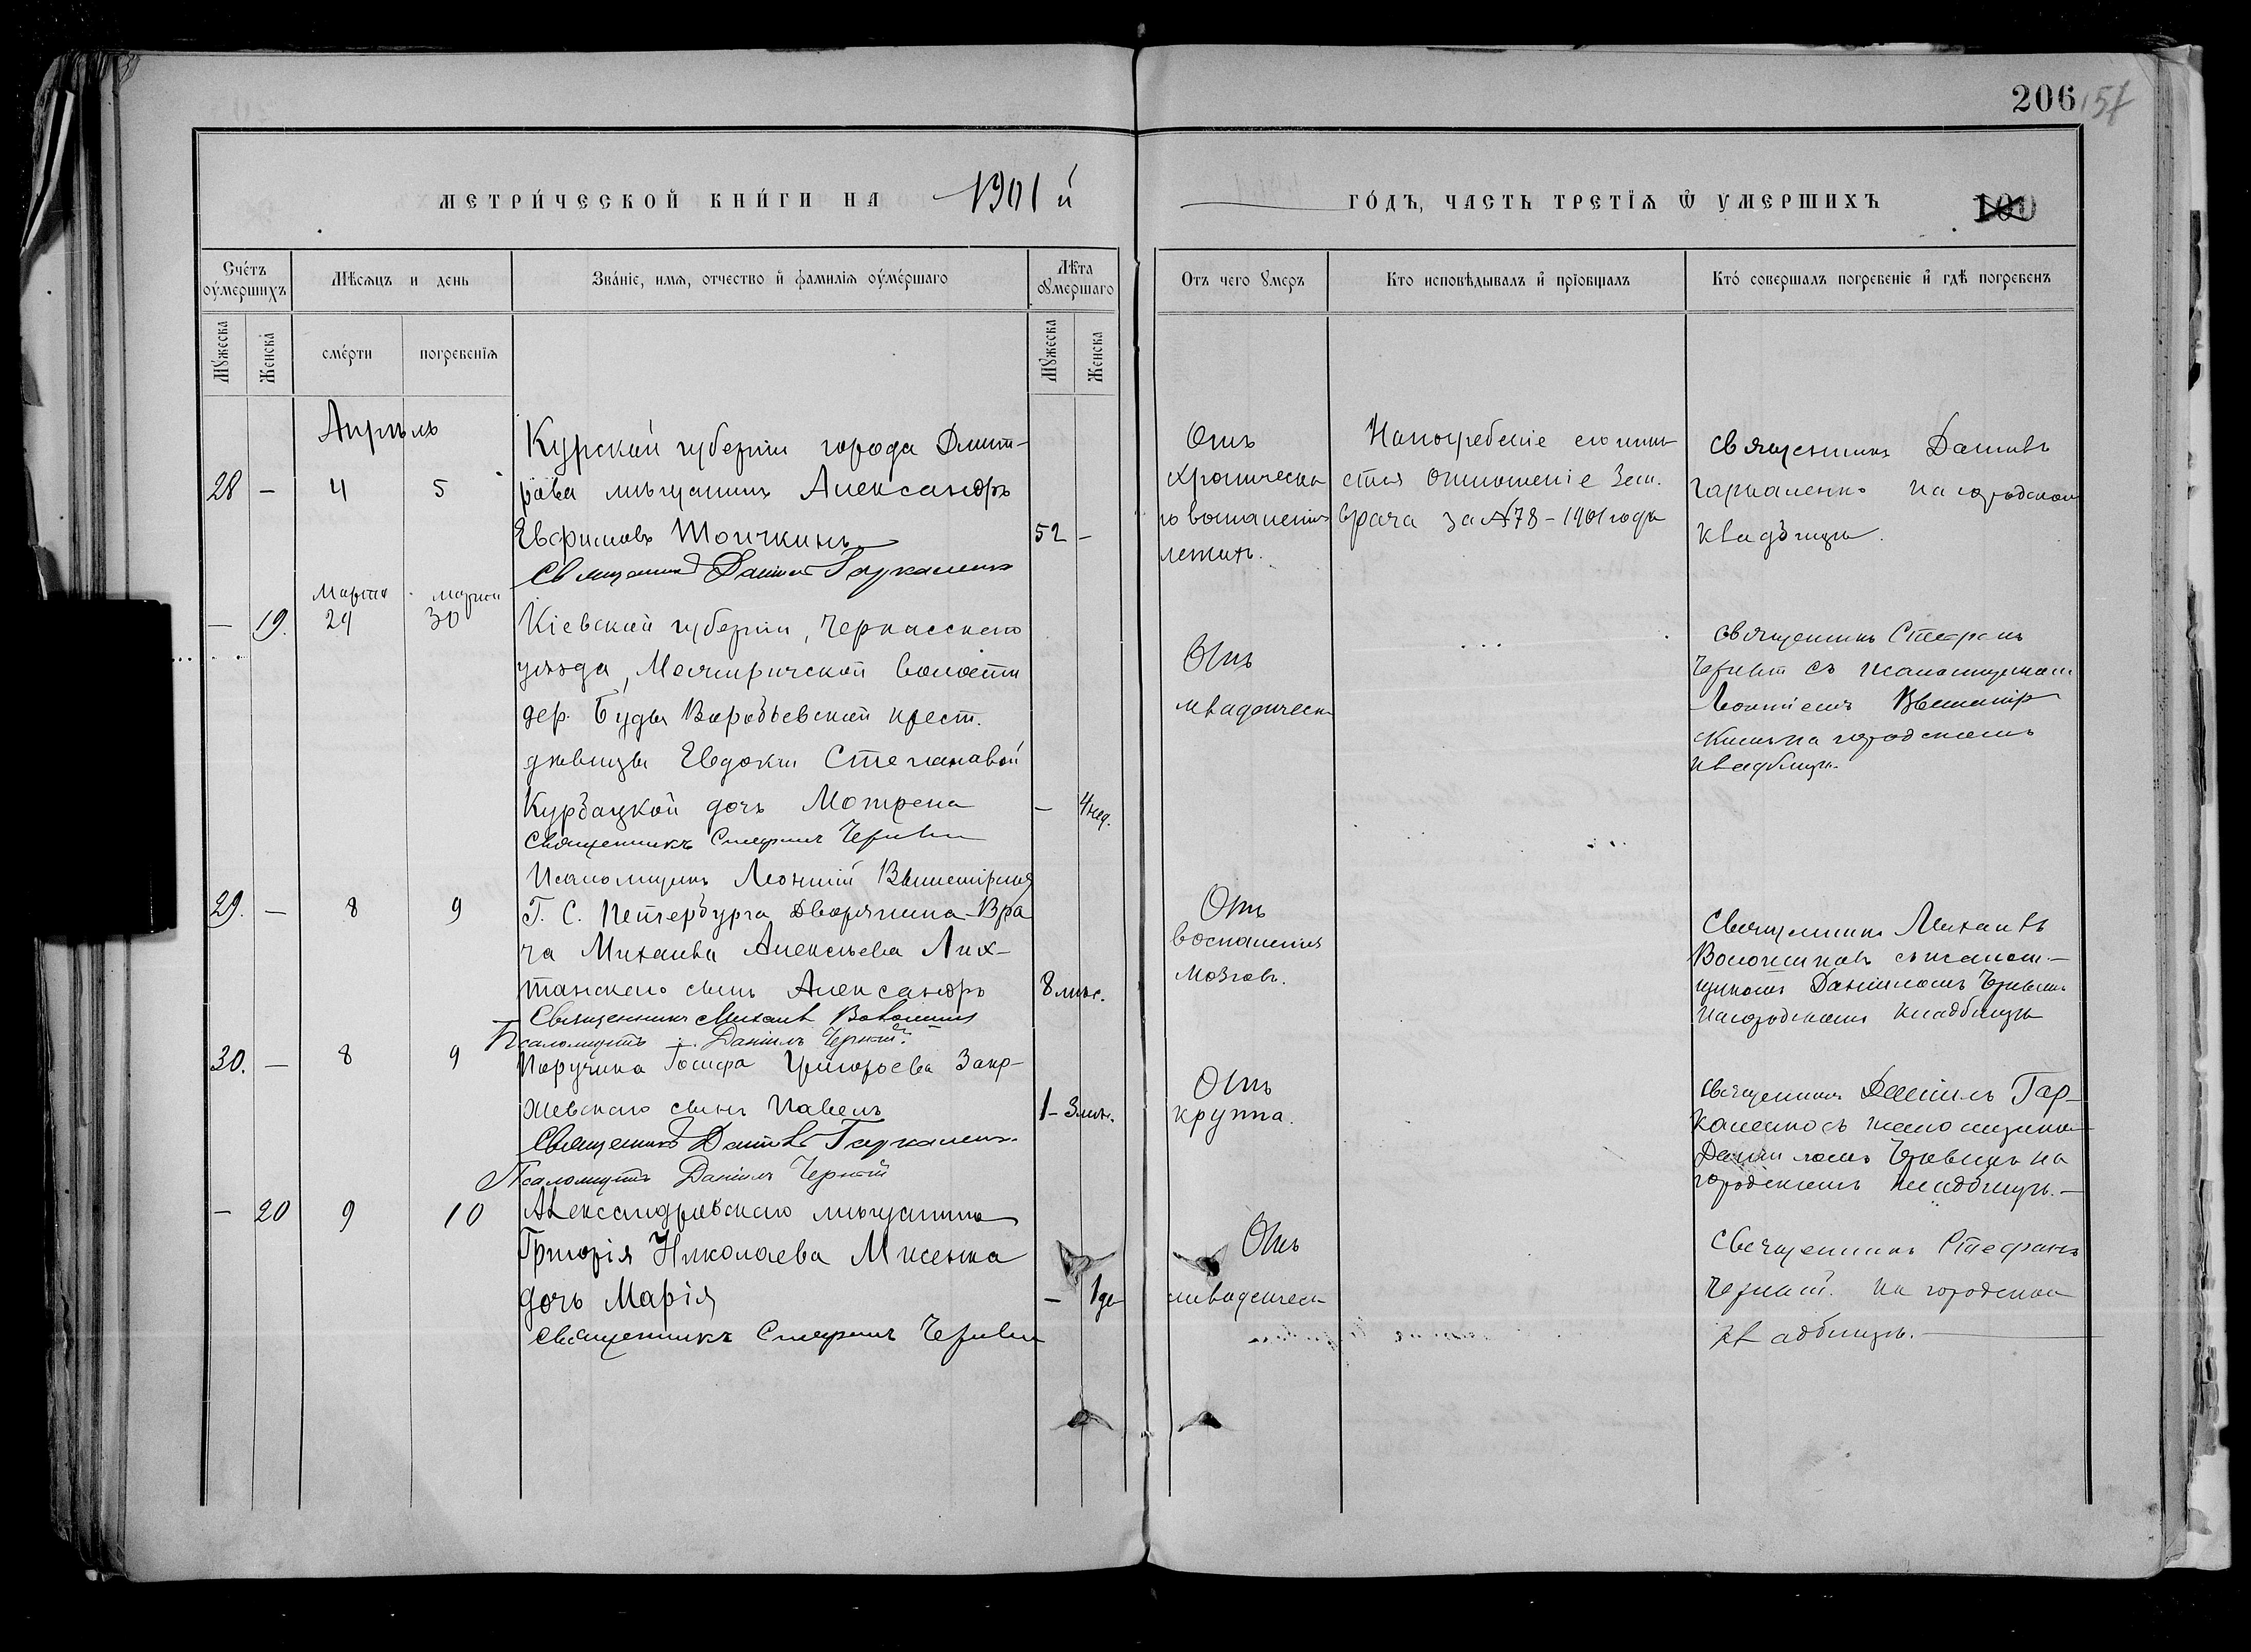 206 157
МЕТРИ́ЧЕСКОЙ КНИ́ГИ НА 1901 й
ГО́ДЪ, ЧАСТЬ ТРЕТІѦ Ѡ̓ УМЕРШИХЪ
100
Сче́тъ оу҆ме́ршихъ
Мѣ́сѧцъ и день
Зва́ніе, имѧ, отчество и҆ фамилїѧ оу҆ме́ршаго
Лѣ́та ᲂумершаго
Отъ чего ᲂумеръ
Кто исповѣдывалъ и҆ прїобщалъ
Кто́ совершалъ погребенїе и҆ гдѣ погребенъ
Мꙋжеска
Женска
сме́рти
погребенїѧ
Мꙋжеска
Женска
Апрѣль
28 — 4 5
Курской губерніи города Дмит-
рова мѣщанинъ Александръ
Евфимовъ
52 —
Священникъ Даніилъ Гаркаленко
Отъ
хроническа
го воспаленія
легкихъ.
На погребеніе
отношеніе Зем.
врача за № 78 - 1901 года
Священникъ Даніилъ
Гаркаленко на городском
кладбищѣ.
Марта марта
— 19. 29 30
Кіевской губерніи, Черкасскаго
уѣзда, Мошнричской волости
дер. Буды Воробьевской крест.
дѣвицы Евдокіи Степановой
Курбацкой дочь Мотрона
— 4 нед.
Священникъ Стефанъ
Отъ
младенческ
Священникъ Стефанъ
съ псаломщикомъ
Леонтіемъ
на городскомъ
кладбищѣ.
Псаломщикъ Леонтій
29. — 8 9
Г. С. Петербурга Дворянина - Вра
ча Михаила Алексѣева Лих-
танскаго сынъ Александръ
8 мѣс.
Священникъ Михаилъ
Псаломщикъ Даніилъ Черный.
Отъ
воспаленія
мозговъ.
Священникъ Михаилъ
съ псалом-
щикомъ Даніиломъ
на городскомъ кладбищѣ
30. — 8 9
Поручика Іосифа Григорьева Закр-
жевскаго сынъ Павелъ
1 - 3 мѣс.
Священникъ Даніилъ Гаркаленко
Псаломщикъ Даніилъ Черный
Отъ
круппа.
Священникъ Даніилъ Гар-
каленко съ псаломщикомъ
Даніиломъ на
городскомъ кладбищѣ. —
— 20 9 10
Александровскаго мѣщанина
Григорія Николаева Мисенка
дочь Марія
— 1 де
Священникъ Стефанъ
Отъ
младенческ
Священникъ Стефанъ
на городском
кладбищѣ. —